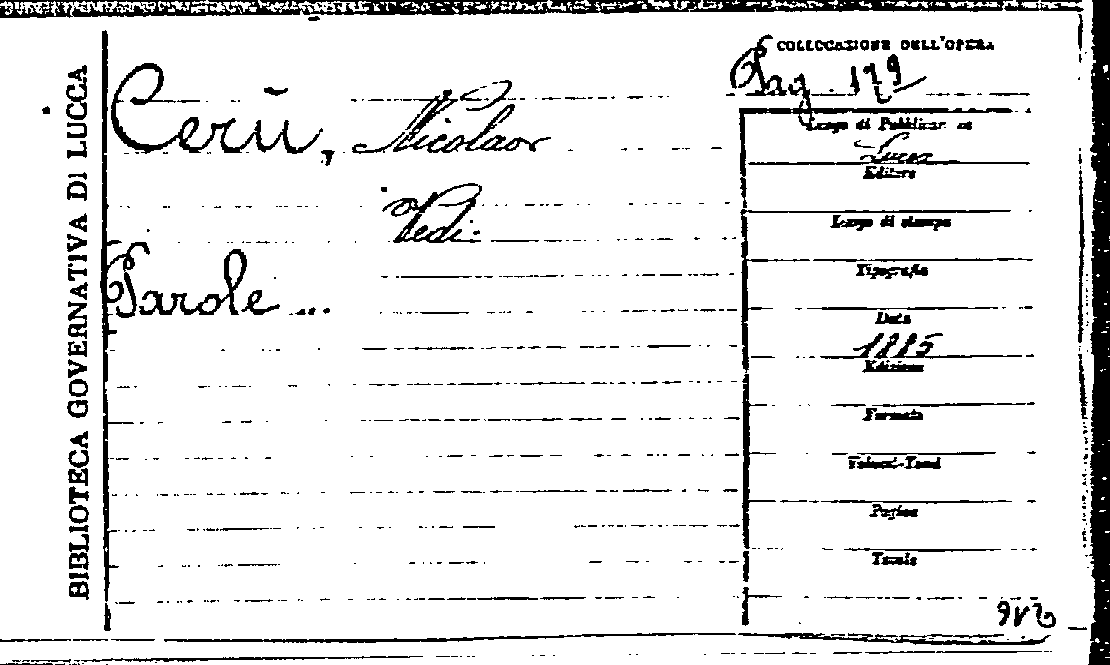 BIBLIOTECA GOVERNATIVA DI LUCCA
Cerù, Nicolaor
Vedi:
Parole ...
COLLOCAZIONE DELL'OPERA
Pag. 179
Luogo di Pubblicaz.ne
Lucca
Editore
Luogo di stampa
Tipografia
Data
1885
Edizione
Formato
Volumi-Tomi
Pagine
Tavole